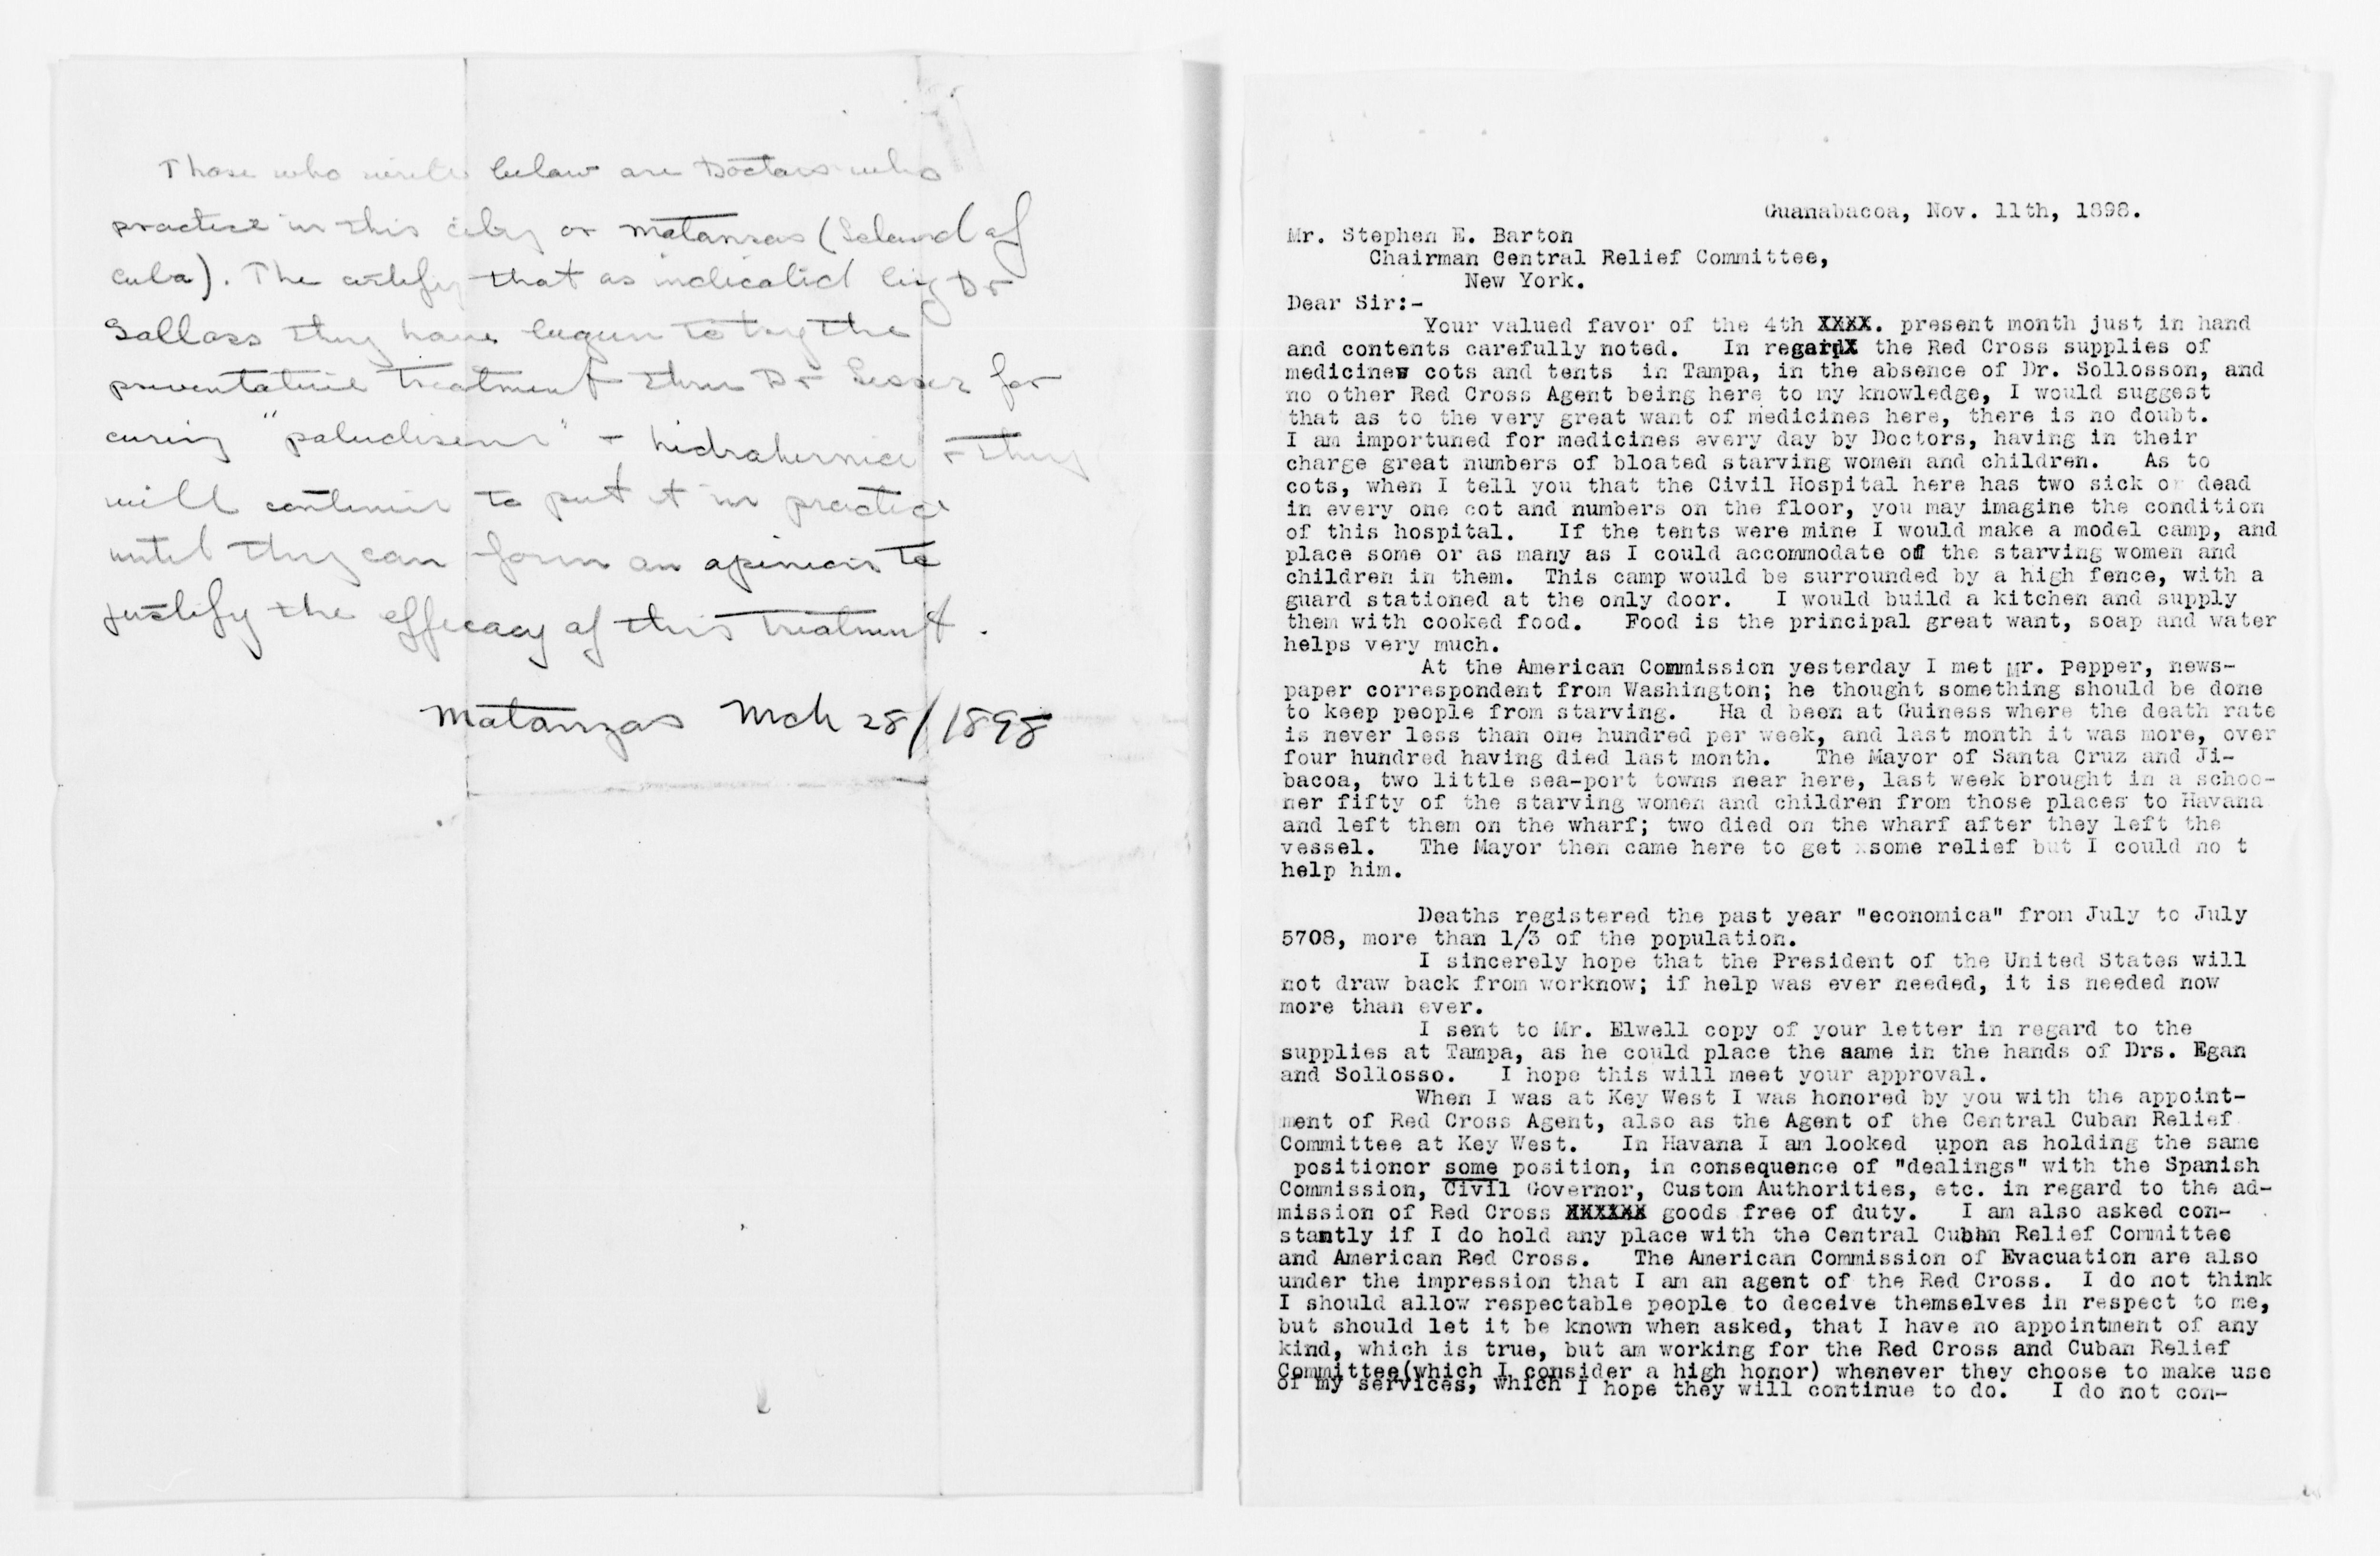 Those who write below are Doctors who
practice in this city or Matanzas (Island of
Cuba). The certify that as indicated by Dr
Solloss they have begun to try the
preventative treatment thru Dr Lesser for
curing "paludisem" + hidrahemia + they
will continue to put it in practice
until they can form an opinion to
justify the efficacy of this treatment.
Matanzas Mch 28/1898
Guanabacoa, Nov. 11th, 1898.
Mr. Stephen E. Barton
Chairman Central Relief Committee,
New York.
Dear Sir:-
Your valued favor of the 4th XXXX. present month just in hand
and contents carefully noted. In regard the Red Cross supplies of
medicines cots and tents in Tampa, in the absence of Dr. Sollosson, and
no other Red Cross Agent being here to my knowledge, I would suggest
that as to the very great want of medicines here, there is no doubt.
I am importuned for medicines every day by Doctors, having in their
charge great numbers of bloated starving women and children. As to
cots, when I tell you that the Civil Hospital here has two sick or dead
in every one cot and numbers on the floor, you may imagine the condition
of this hospital. If the tents were mine I would make a model camp, and
place some or as many as I could accommodate of the starving women and
children in them. This camp would be surrounded by a high fence, with a
guard stationed at the only door. I would build a kitchen and supply
them with cooked food. Food is the principal great want, soap and water
helps very much.
At the American Commission yesterday I met Mr. Pepper, news-
paper correspondent from Washington; he thought something should be done
to keep people from starving. Ha d been at Guiness where the death rate
is never less than one hundred per week, and last month it was more, over
four hundred having died last month. The Mayor of Santa Cruz and Ji-
bacoa, two little sea-port towns near here, last week brought in a schoo-
ner fifty of the starving women and children from those places to Havana
and left them on the wharf; two died on the wharf after they left the
vessel. The Mayor then came here to get some relief but I could no t
help him.
Deaths registered the past year "economica" from July to July
5708, more than 1/3 of the population.
I sincerely hope that the President of the United States will
not draw back from worknow; if help was ever needed, it is needed now
more than ever.
I sent to Mr. Elwell copy of your letter in regard to the
supplies at Tampa, as he could place the same in the hands of Drs. Egan
and Sollosso. I hope this will meet your approval.
When I was at Key West I was honored by you with the appoint-
ment of Red Cross Agent, also as the Agent of the Central Cuban Relief
Committee at Key West. In Havana I am looked upon as holding the same
positionor some position, in consequence of "dealings" with the Spanish
Commission, Civil Governor, Custom Authorities, etc. in regard to the ad-
mission of Red Cross XXXXXX goods free of duty. I am also asked con-
stantly if I do hold any place with the Central Cuban Relief Committee
and American Red Cross. The American Commission of Evacuation are also
under the impression that I am an agent of the Red Cross. I do not think
I should allow respectable people to deceive themselves in respect to me,
but should let it be known when asked, that I have no appointment of any
kind, which is true, but am working for the Red Cross and Cuban Relief
Committee(which I consider a high honor) whenever they choose to make use
of my services, which I hope they will continue to do. I do not con-